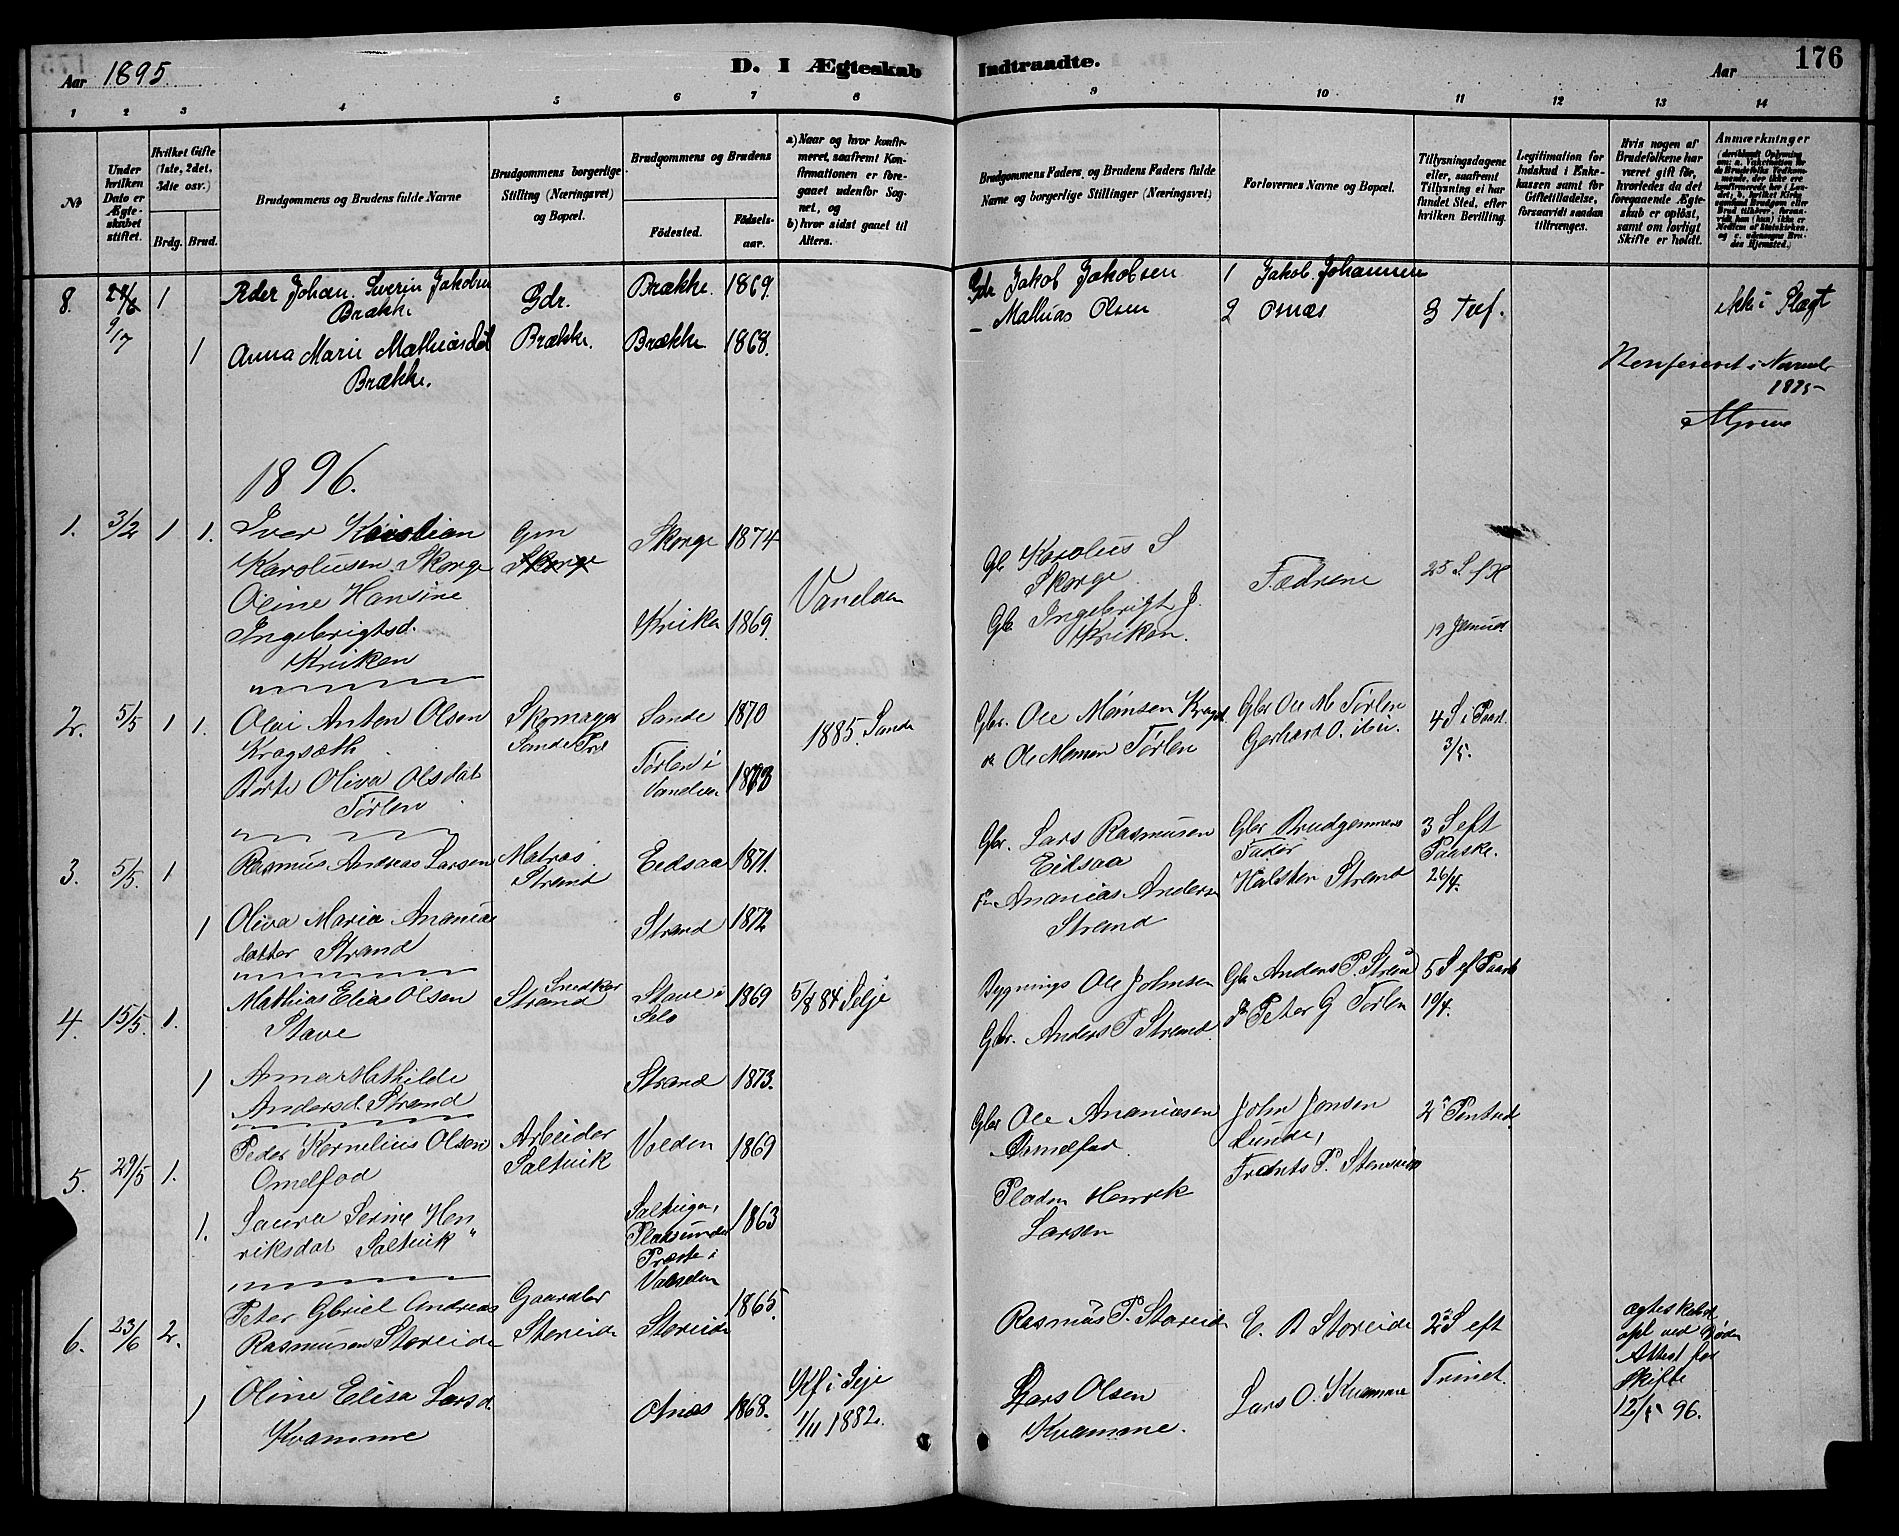 176
Aar 1895.
D. I Ægteskab Indtraadte.
Aar
1 2 3 4 5 6 7 8 9 10 11 12 13 14
No
Under hvilken Dato er Ægteskabet stiftet.
Hvilket Gifte (1ste, 2det, 3die osv.)
Brdg. Brud.
Brudgommens og Brudens fulde Navne
Brudgommens borgerlige Stilling (Næringsvei) og Bopæl.
Brudgommens og Brudens
Födested.
Födselsaar.
a) Naar og hvor konfirmeret, saafremt Konfirmationen er foregaaet udenfor Sognet, og
b) hvor sidst gaaet til Alters.
Brudgommens Faders, og Brudens Faders fulde Navne og borgerlige Stillinger (Næringsvei)
Forlovernes Navne og Bopæl.
Tillysningsdagene eller, saafremt Tillysning ei har fundet Sted, efter hvilken Bevilling.
Legitimation for Indskud i Enkekassen samt for Giftetilladelse, forsaavidt saadan tiltrænges.
Hvis nogen af Brudefolkene har været gift för, hvorledes da det foregaaende Ægteskab er oplöst, samt om lovligt Skifte er holdt.
Anmærkninger
8. 1 Peder Johan Severin Jakobsen Brække Gdr. Brække. 1869. Gdr Jakob Jakobsen 1 Jakob Johannsen
- Mathias Olsen 2 Osnæs 3 Tref. ikke i Slægt
9/7 1 Anna Marie Mathiasdt Brække. Brække. Brække 1868.
Konfereret i
1895
1896.
1. 3/2 1 1. Iver Kristian Karolusen Skorge Gm Skorge Skorge 1874 Gb Karolus S Skorge Fædrene
Oline Hansine Ingebrigtsd. Kriken Kriken 1869. Vanelven Gb. Ingebrigt J. Kriken.
2. 5/5 1 1. Olai Anton Olsen Kragsæth Skomager Sande Sande 1870 1885. Sande Gbr. Ole Monsen Gbr Ole M Tørlen 4 S i
Oliva Olsdat Tørlen Tørlen i Vanelven 1873 Ole Monsen Tørlen Gerhard O. 3/5.
3. 5/5. 1 Rasmus Andreas Larsen Matros. Strand Eidsaa 1871. Gbr. Lars Rasmusen Eidsaa Gbr Brudgommens Fader 3 S eft Paaske. 26/4.
1 Oliva Maria Ananias datter Strand Strand 1872 Ananias Anders Strand Halsten Strand
4. 15/5. 1. Mathias Elias Olsen Stave Snedker Strand Stave i Selo 1869 5/8 84 Selje Bygnings Ole Johnsen Gbr Anders P. Strand 5 S ef Paask 19/4.
1 Anna Mathilde Andersd. Strand Strand 1873. Gbr. Anders P Strand. Peter G Tørlen
5. 29/5 1. Peder Kornelius Olsen Omelfod Arbeider Saltvik Volden 1869 Gbr Ole Ananiasen Omelfod. John Jonsen Lunde,
1. Laura Serine Henriksdat Saltvik 1863 Pladsm Henrik Larsen
6. 23/6 2. Peter Gbriel Andreas Rasmusen Storeide Gaardbr Storeide Storeide 1865. Rasmus P. Storeide E. B Storeide 2 S eft Trinet. ægteskabet opl ved Død Attest for Skifte 12/5 96.
1 Oline Elisa Larsd. Kvamme Osnes 1868. Kf i Selje 1/11 1882. Lars Olsen Kvamme. Lars O. Kvamme